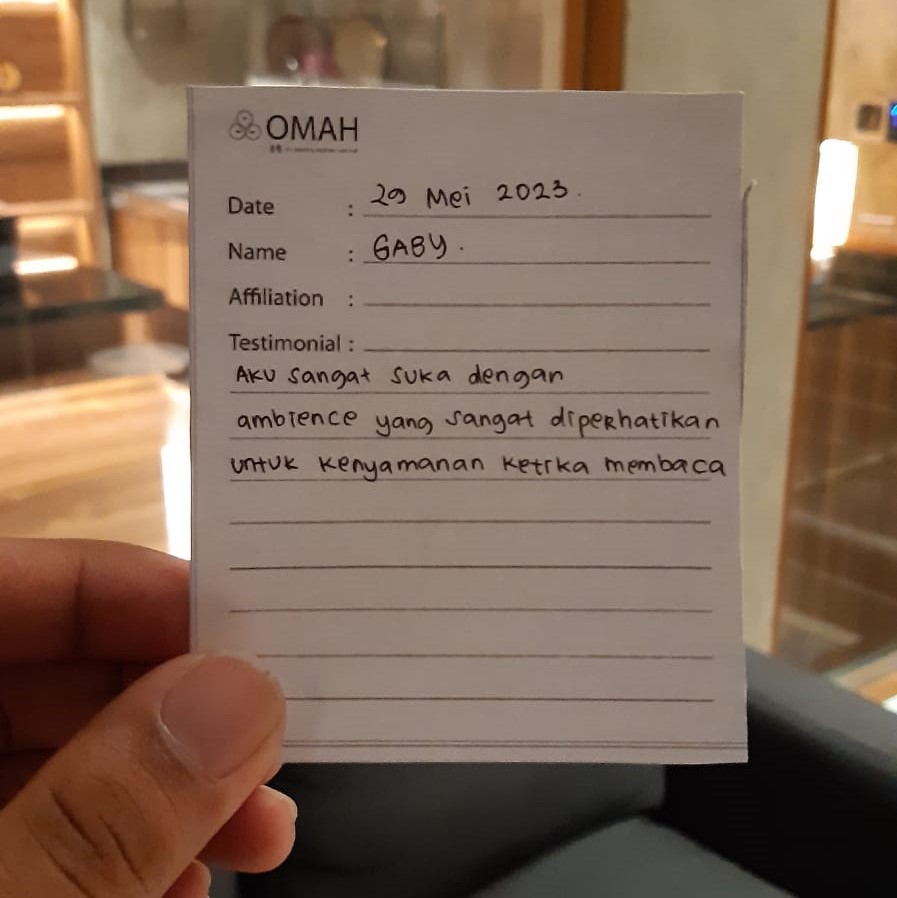 OMAH
Date : 29 Mei 2023.
Name : GABY.
Affiliation :
Testimonial :
Aku sangat suka dengan
ambience yang sangat diperhatikan
untuk kenyamanan ketika membaca